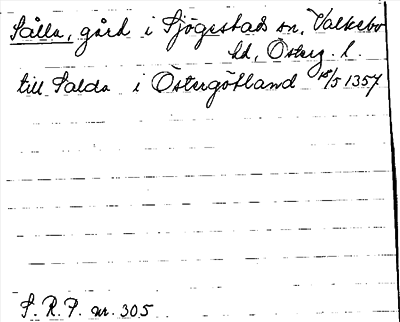 Sälla, gård i Sjögestads sn, Valkebo
hd, Österg. l.
till Salda i Östergötland 18/5 1357
S. R. P. nr. 305